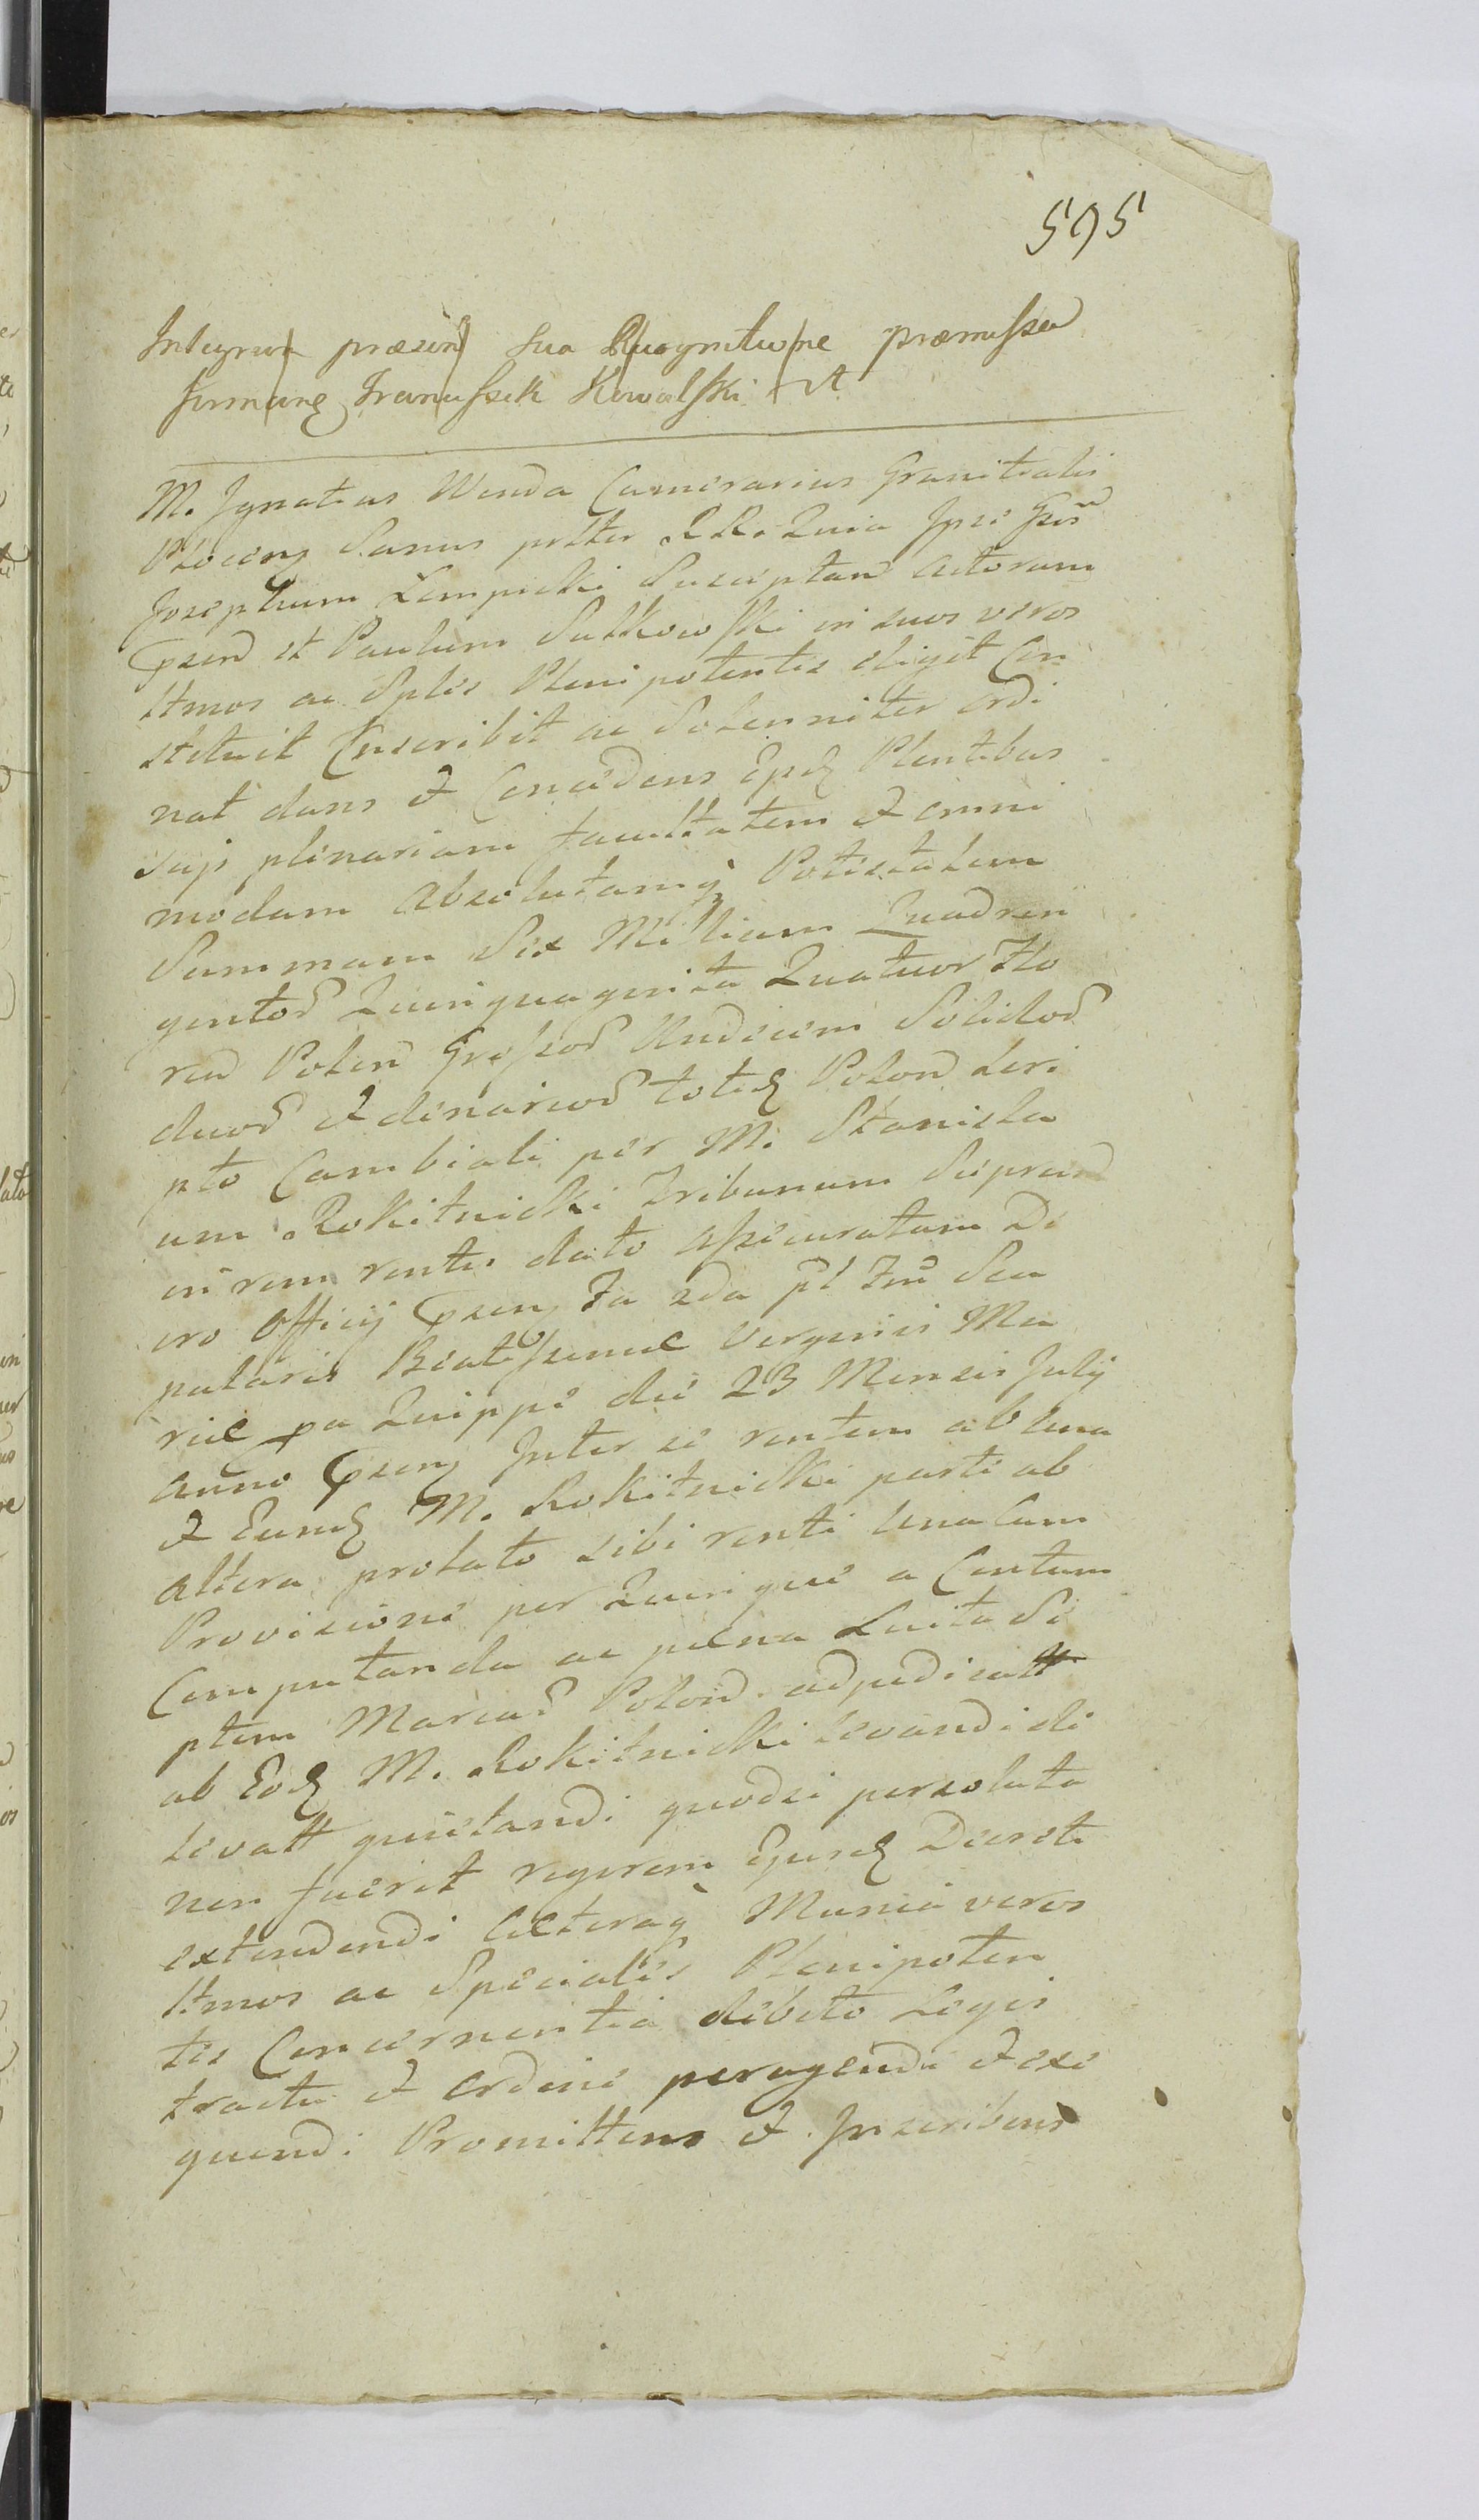 595
Integrum præsen sua Recognitione præmissa
firmans Franciszek Kowalski mp
M. Ignatius Wenda Camerarius Granitialis
Plocens Sanus pltter RR. Quia Ipse Gsos
Josephum Lempicki Susceptan actorum
psen et Paulum Sulkowski in suos veros
ltmos ac Splès Plenipotentes eligit Con
stituit Inscribit ac Solenniter ordi
nat dans et Concedens Eysd Plentibus
suis plenariam facultatem et omni
modam absolutamq Potestatem
Summam Sex Millium Quadrin
gentos Quinquaginta Quatuor Flo
ren Polon Grossos Undecim Solidos
duos et denarios totid Polon Scri
pto Cambiali per M. Stanisla
um Rokitnicki Tribunum Sieprcen
in rem rentis dato assecuratam De
cro Officij psens Fa 2da pt Ftu Sca
pularis Beatissimæ Virginis Ma
riæ pa Quippe die 23 Mensis Julij
anno psens Inter se rentem ab una
et Eund M. Rokitnicki parte ab
altera prolato sibi renti una Cum
Provisione per Quinque a Centum
Computanda ac pæna Luita Se
ptem Marcas Polon. adjudicatt
ab Eod M. Rokitnicki levandi de
levatt quietandi quodsi persoluta
non fuerit rygorem Ejusd Decreti
extendendi Cæteraq Munia veros
ltmos ac Speciales Plenipoten
tes Concernentia debito Legis
tractu et ordine peragendi et exe
quendi Promittens et Inscribens